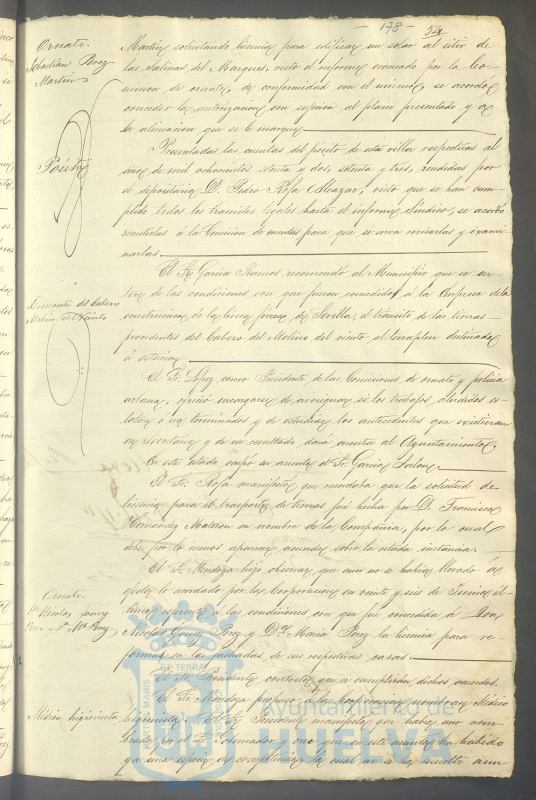 - 178 -
54
Ornato.
Sebastian Perez
Martin
Martin, solicitando licencia para edificar un solar al sitio de
las Salinas del Marques, visto el informe evacuado por la Co-
mision de ornato, de conformidad con el mismo, se acordó
conceder la autorizacion con sujecion al plano presentado y a
la alineacion que se le marque
Pósito
Presentadas las cuentas del pósito de esta villa respectivas al
año de mil ochocientos setenta y dos, setenta y tres, rendidas por
el depositario D. Pedro Rofa Alcazar, visto que se han cum-
plido todos los tramites legales hasta el informe Síndico, se acordó
remitirlas á la Comision de cuentas para que se sirva revisarlas y exami-
narlas.
Desmonte del Cabezo
Molino del Viento
El Sr. Garcia Ramos recomendó al Municipio que se en-
tere de las condiciones con que fueron concedidos á la Empresa de la
construccion de la linea férrea de Sevilla, el tránsito de las tierras
procedentes del Cabezo del Molino del viento al terraplen destinado
á estacion
El Sr. Lopez como Presidente de las Comisiones de ornato y policia
urbana, ofreció encargarse de averiguar si los trabajos aludidos es-
tan ó no terminados y de estudiar los antecedentes que existieran
en Secretaria y de su resultado dará cuenta al Ayuntamiento.
En este estado ocupó su asiento el Sr. Garcia
El Sr. Rofa manifestó que recordaba que la solicitud de
licencia para el trasporte de tierras fué hecha por D. Francisco
Hernandez en nombre de la Compañia, por lo cual
debe por lo menos aparecer acuerdo sobre la citada instancia.
Ornato.
D. Nicolas Gomez
Perez y Dª Mª Perez
El Sr. Mendoza hizo observar que aun no se habia llevado á
efecto lo acordado por la Corporacion en veinte y seis de Junio úl-
timo respecto á las condiciones con que fué concedida á Don
Nicolas Gomez Perez y Dª Maria Perez la licencia para re-
formar las fachadas de sus respectivas casas.
El Sr. Presidente contestó que se cumplirian dichos acuerdos.
Médico higienista
El Sr. Mendoza
higienista. El Sr. Presidente manifestó que habia uno nom-
brado por el Sr. Gobernador y cree que en este asunto ha habido
ya una especie de competencia, la cual no se ha resuelto aun
Ayuntamiento de
HUELVA
PORTUS MARIS
ET TERRAE